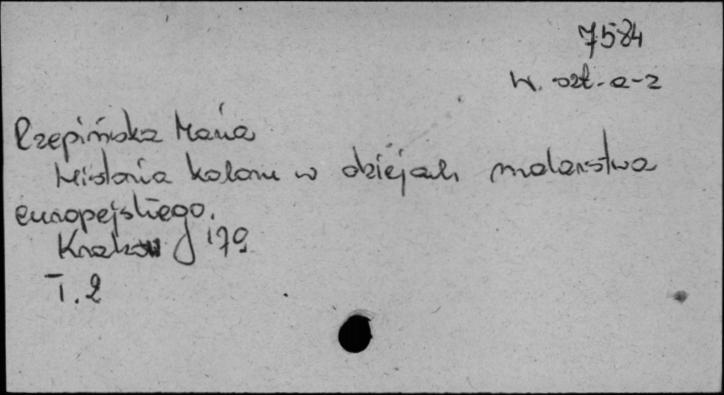 7584
W. szt. a-z
Rzepińska Maria
Historia koloru w dziejach malarstwa
europejskiego.
Kraków '79
T. 2